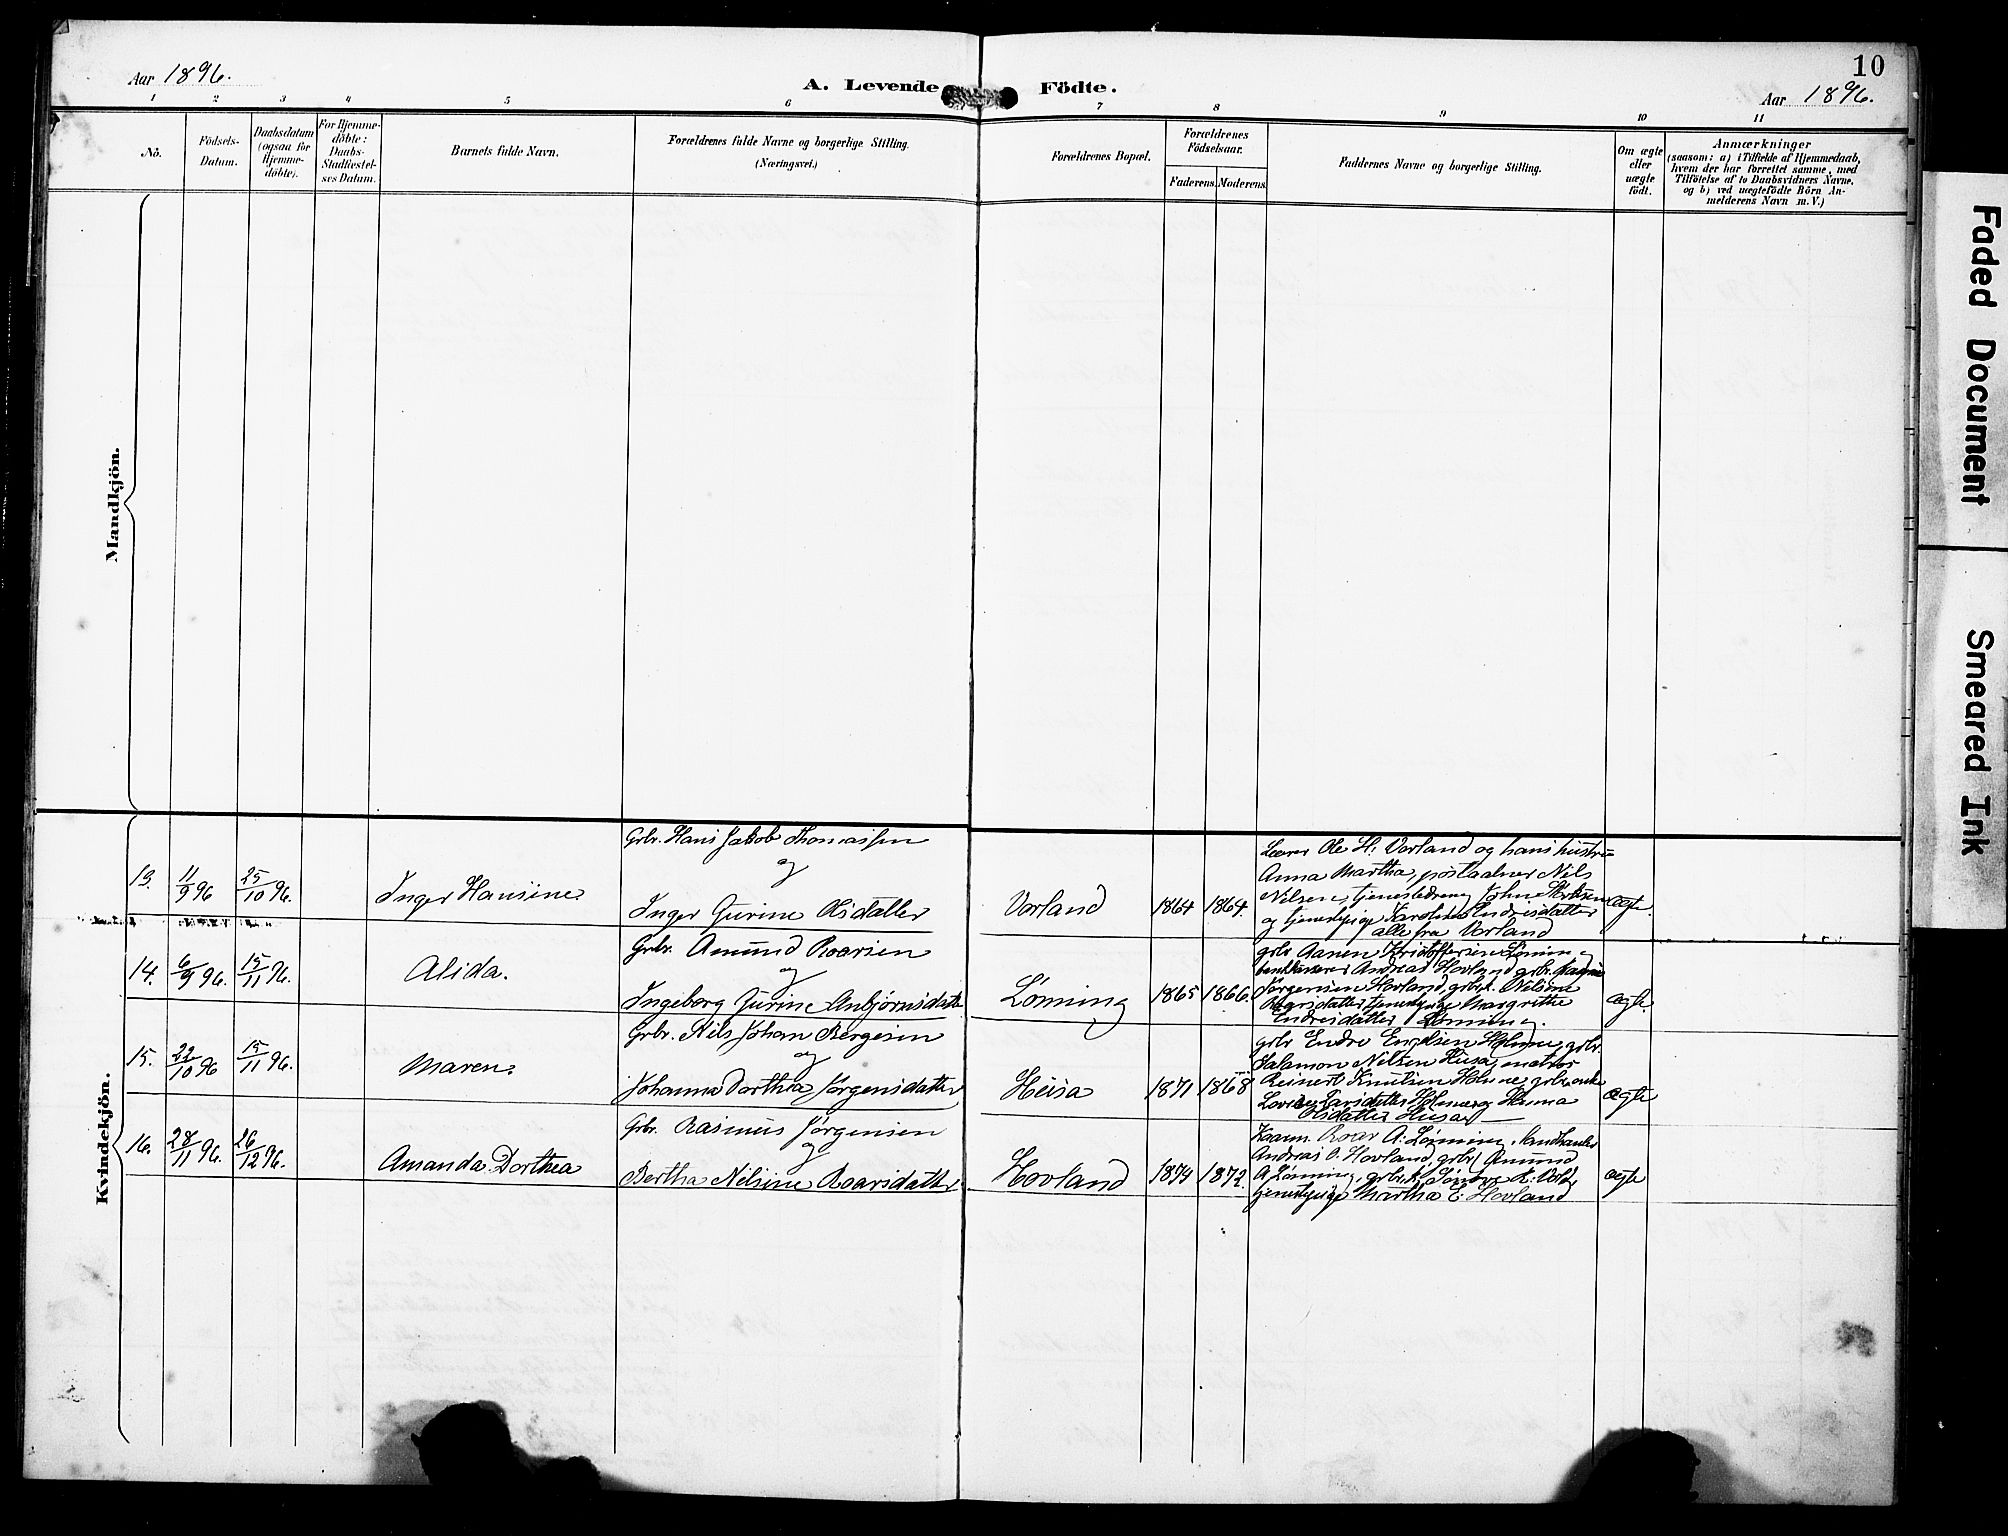 Aar 1896.
A. Levende Födte.
10
Aar 1896.
1 2 3 4 5 6 7 8 9 10 11
No.
Födsels-
Datum.
Daabsdatum
(ogsaa for
Hjemme-
döbte).
For Hjemme-
döbte:
Daabs-
Stadfæstel-
ses Datum.
Barnets fulde Navn.
Forældrenes fulde Navne og borgerlige Stilling.
(Næringsvei.)
Forældrenes Bopæl.
Forældrenes
Födselsaar.
Faderens. Moderens.
Faddernes Navne og borgerlige Stilling.
Om ægte
eller
uægte
født.
Anmærkninger
(saasom: a) i Tilfælde af Hjemmedaab,
hvem der har forrettet samme, med
Tilföielse af to Daabsvidners Navne,
og b) ved uægtefödte Börn An-
melderens Navn m. V.)
Mandkjön.
Kvindekjön.
13.
11/9 96
25/10 96.
Inger Hansine
Grbr. Hans Jakob Thomassen
og
Inger Gurine Olsdatter
Vorland
1864
1864.
Lærer Ole H. Vorland og hans hustru
Anna Martha, Nils
Nilsen, tjenestedreng John
og tjenestepige Karoline Endresdatter
alle fra Vorland
ægte.
14.
6/9 96.
15/11 96.
Alida.
Grbr. Amund Roarsen
og
Ingeborg Gurine Anbjørnsdatter
Lønning
1865
1866.
grbr. Aanen Kristoffersen Lønning
Andreas Hovland, grbr.
Jørgensen Hovland, grbr. k. Nilsine
Roarsdatter, tjenestepige Margrithe
Endresdatter Lønning.
ægte.
15.
22/10 96
15/11 96.
Maren.
Grbr. Nils Johan Bergesen
og
Johanna Dorthea Jørgensdatter
Heisa
1871
1868
grbr. Endre Engelsen Holme, grbr.
Salamon Nilsen Husa, matros
Reinert Knutsen Holme, grbr. enke
Larsdatter Holme og
Olsdatter Husa
ægte
16.
28/11 96.
26/12 96.
Amanda Dorthea
Grbr. Rasmus Jørgensen
og
Bertha Nilsine Roarsdatter
Hovland
1874
1872.
Roar A. Lønning, landhandler
Andreas O. Hovland, grbr. Amund
A. Lønning, grbr. k.
tjenestepige Martha E. Hovland
ægte
Faded Document
Smeared Ink